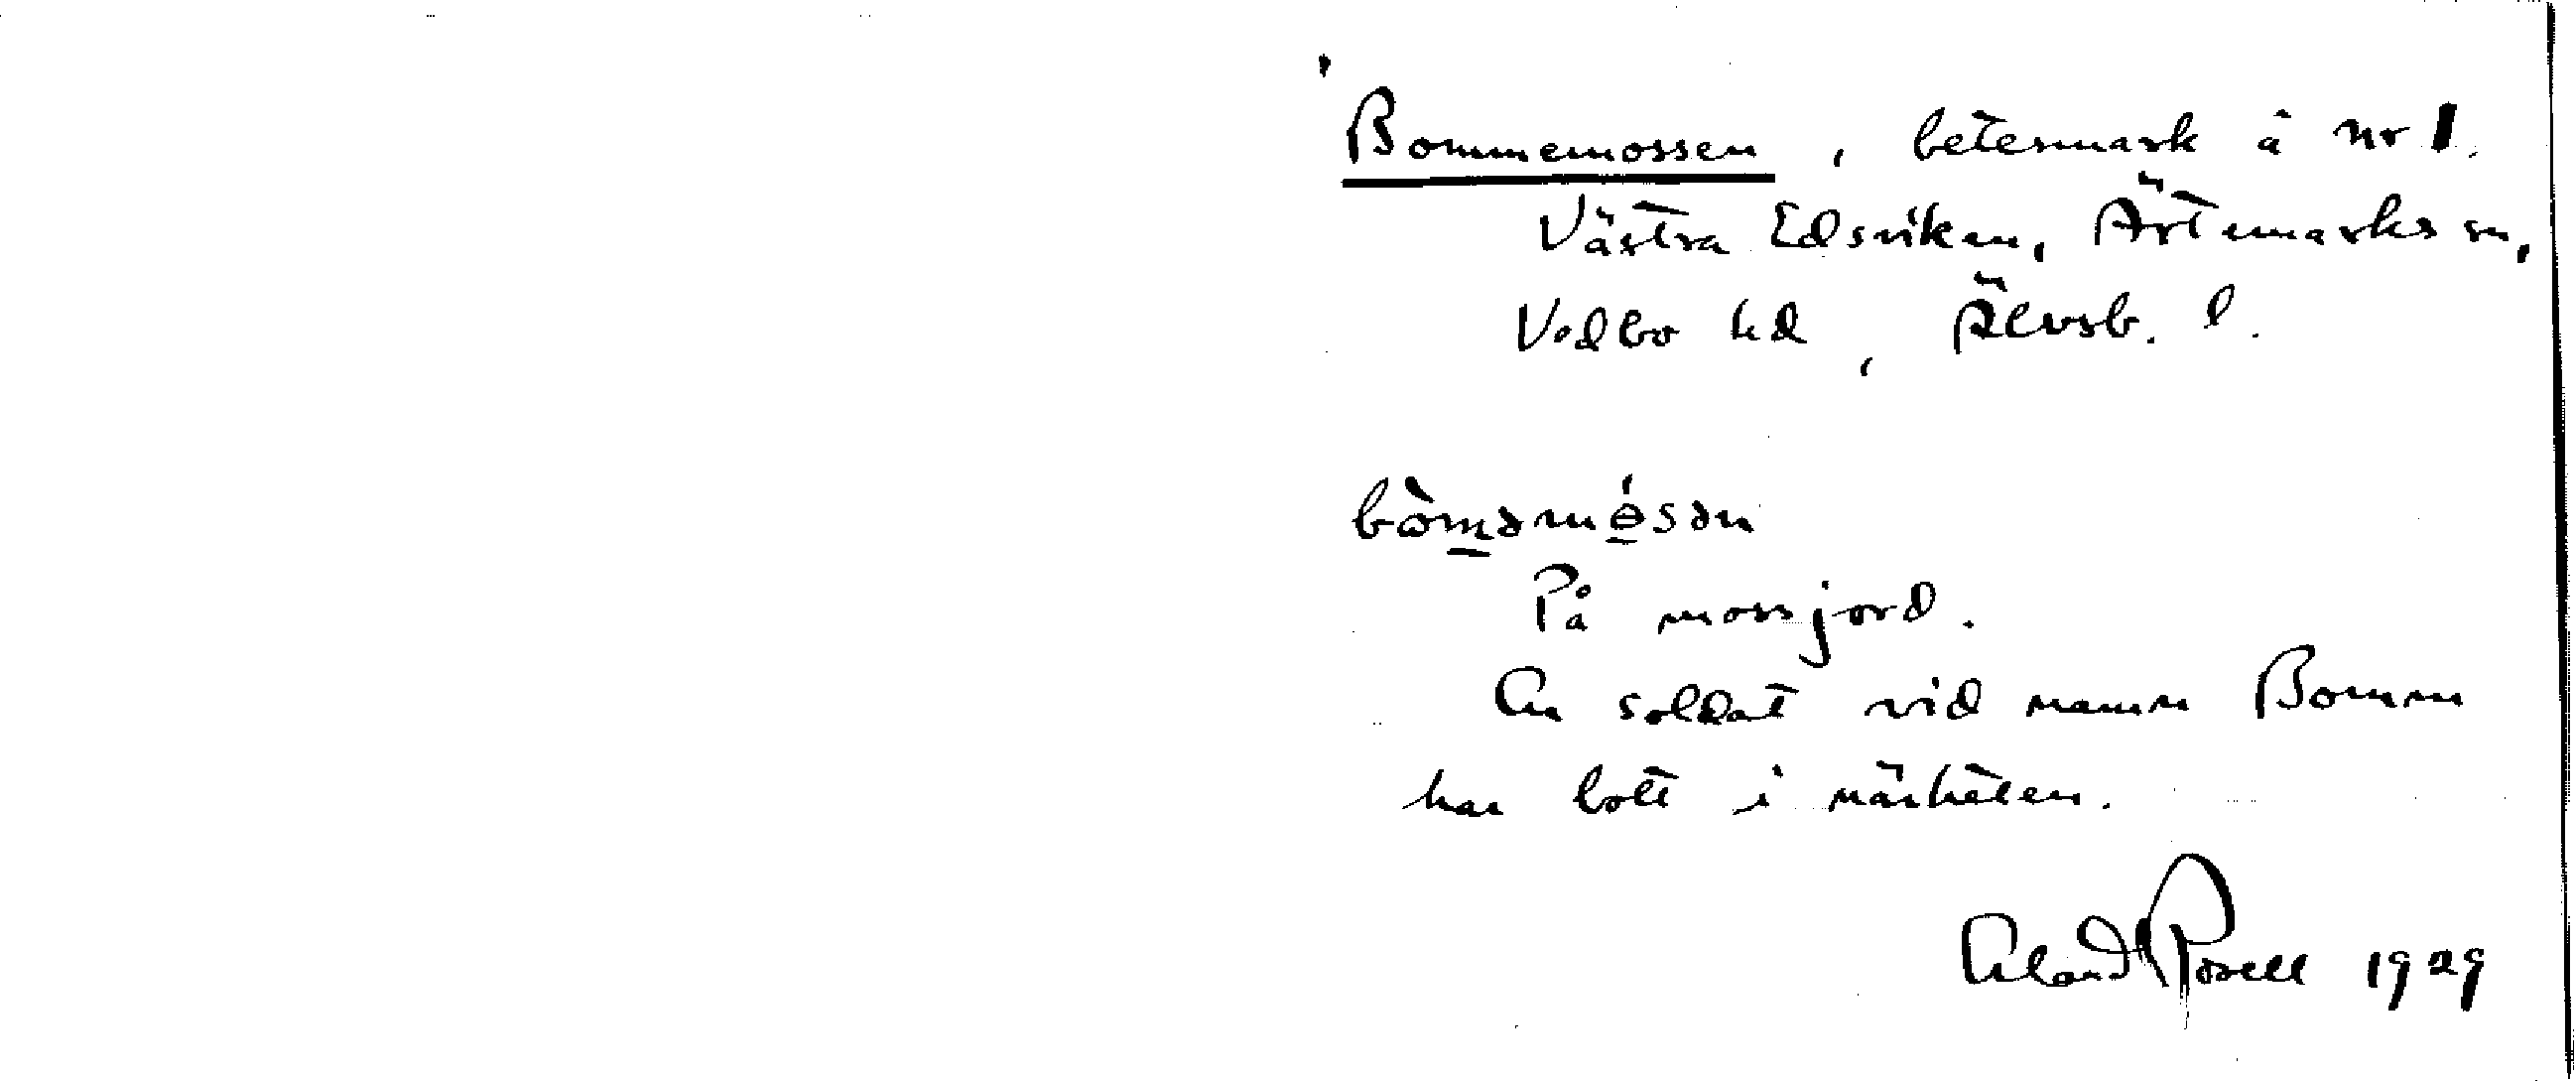 Bommemossen, betesmark å nr 1.
Västra Edsviken, Ärtemarks sn,
Vedbo hd, Älvsb. l.
bòməmósən
På mossjord.
En soldat vid namn Bomm
har bott i närheten.
Erland Rosell 1929